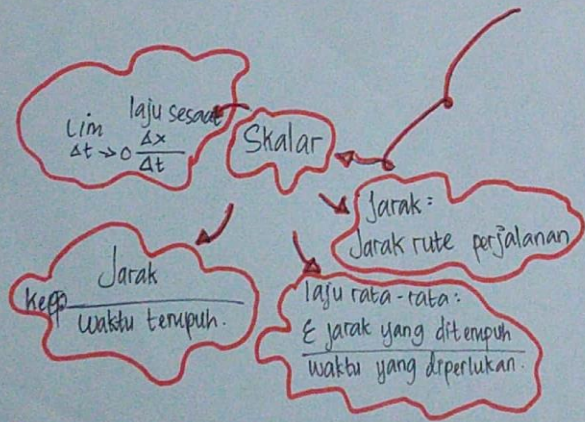 laju sesaat
Lim Δt→0 Δx/Δt
Skalar
Jarak:
Jarak rute perjalanan
Jarak
waktu tempuh.
laju rata-rata:
Σ jarak yang ditempuh
waktu yang diperlukan.